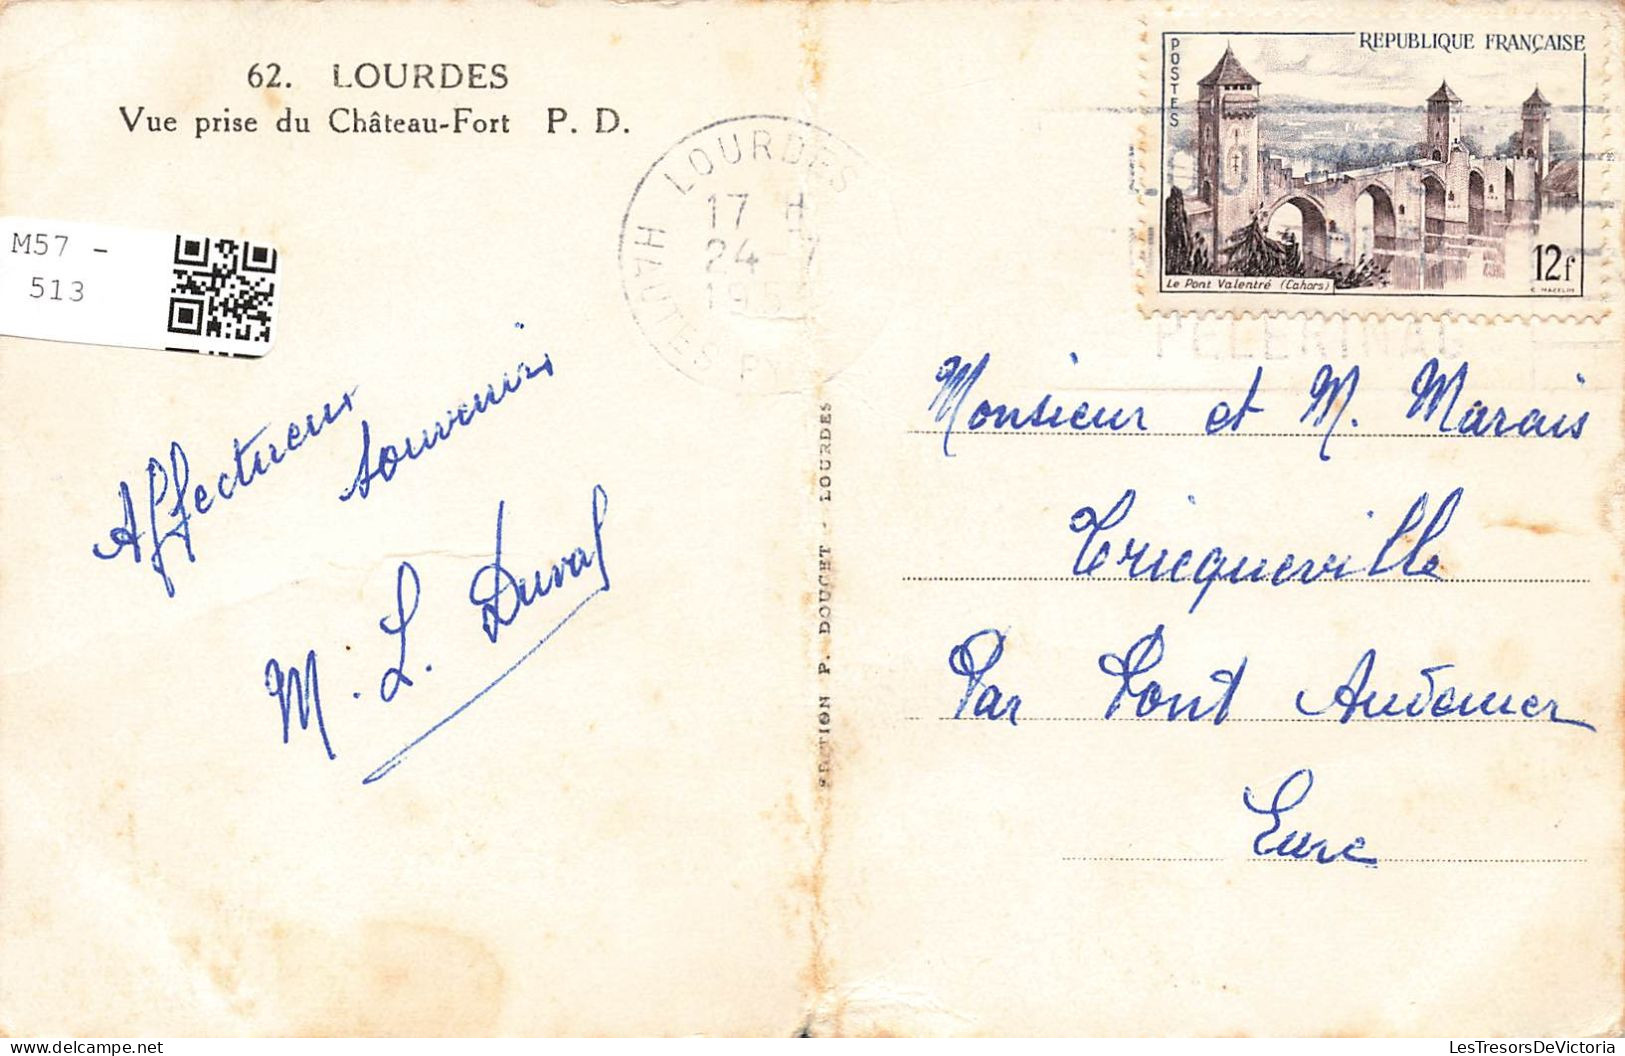 62. LOURDES
Vue prise du Château-Fort P. D.
M57 -
513
LOURDES
17 H
24 -7
HAUTES PY
REPUBLIQUE FRANÇAISE
POSTES
12f
Le Pont Valentré (Cahors)
C. MAZELIN
PELERINAG
Affectueux
souvenirs
M. L. Duval
EDITION P. DOUCET - LOURDES
Monsieur et M. Marais
Tricqueville
Par Pont Audemer
Eure
LesTresorsDeVictoria